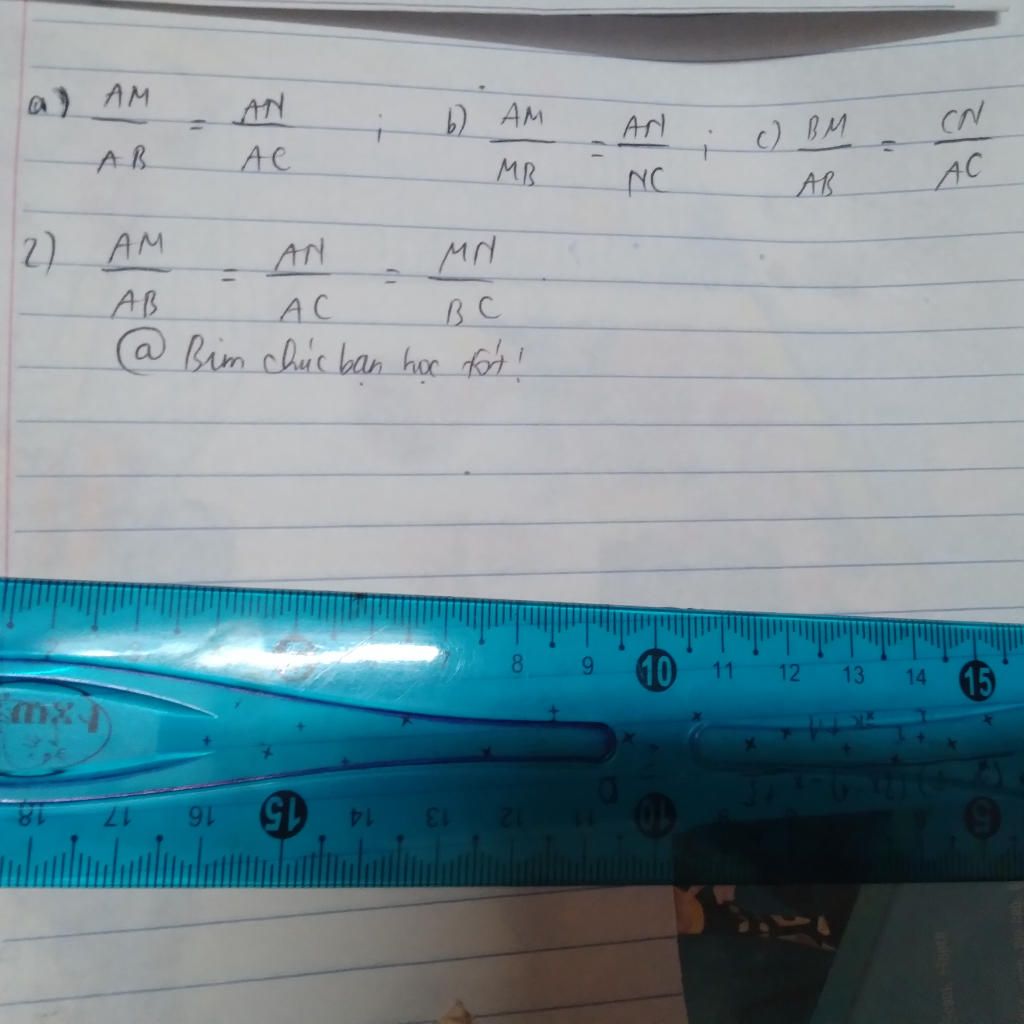 a) AM/AB = AN/AC ; b) AM/MB = AN/NC ; c) BM/AB = CN/AC
2) AM/AB = AN/AC = MN/BC
@ Bim chúc bạn học tốt!
8 9 10 11 12 13 14 15
18 17 16 15 14 13 12 11 10 5